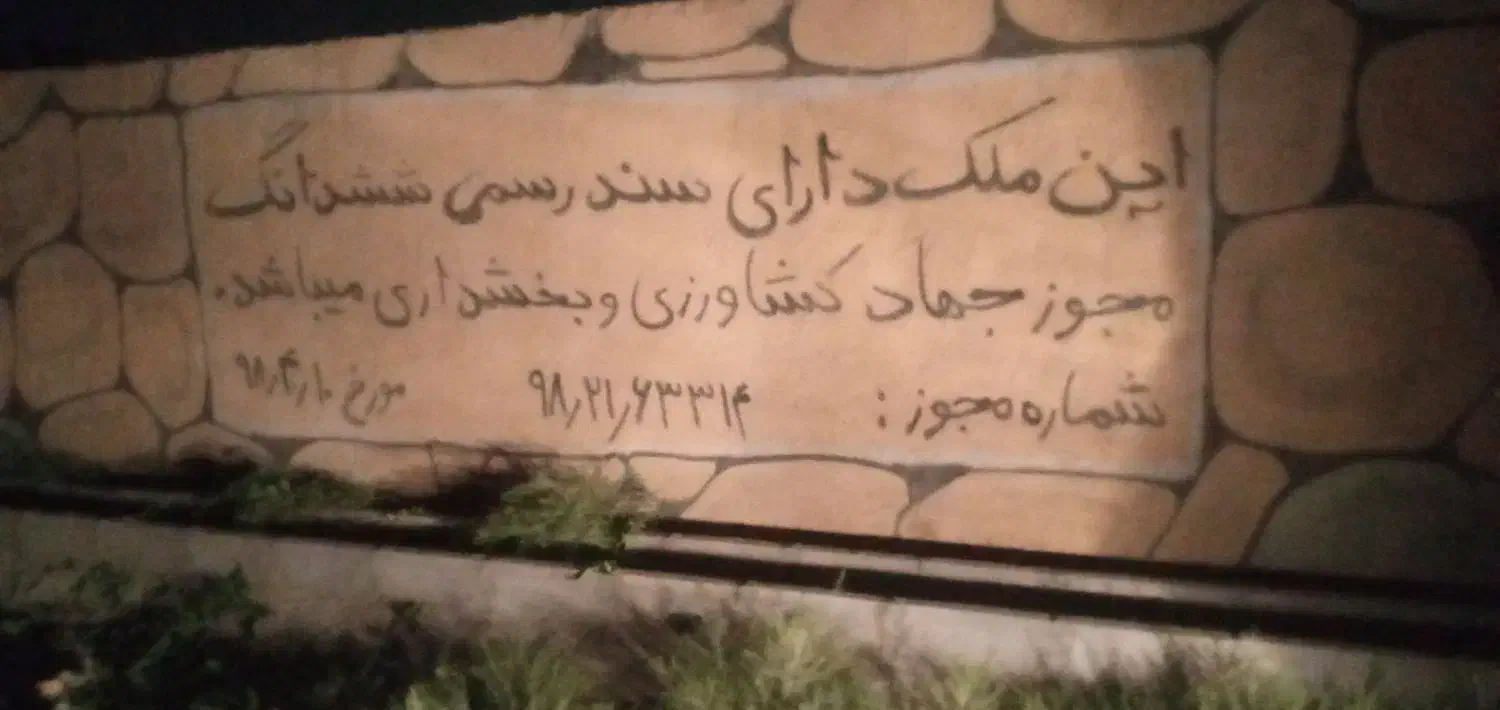 این ملک دارای سند رسمی ششدانگ
مجوز جهاد کشاورزی و بخشداری میباشد.
شماره مجوز : ۹۸٫۲۱٫۶۳۳۱۴ مورخ ۹۸٫۴٫۱۰